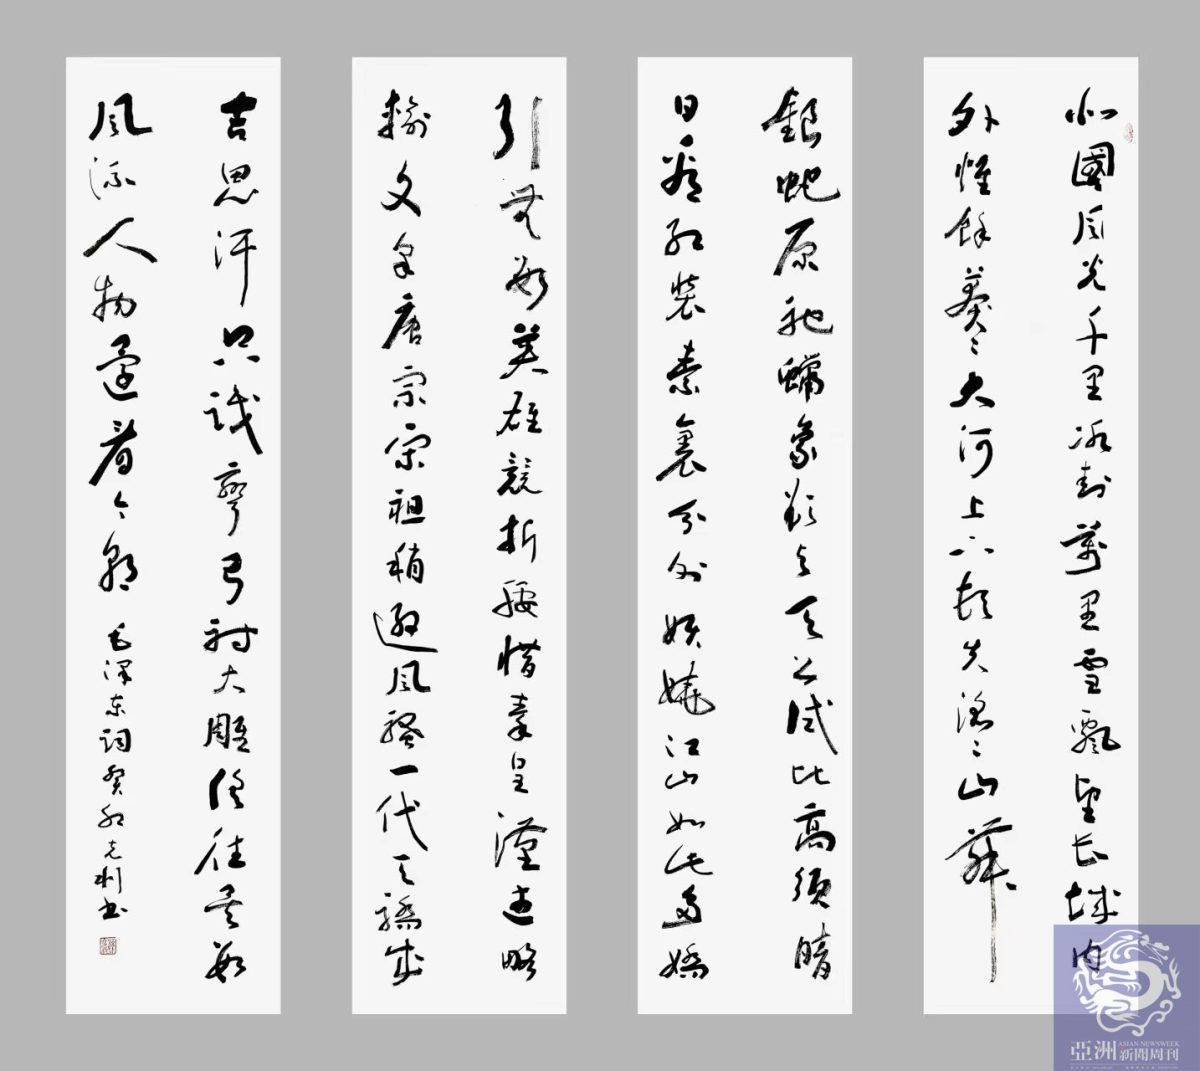 北國風光千里冰封萬里雪飄望長城內
外惟餘莽〻大河上下頓失滔〻山舞
銀蛇原馳蠟象欲與天公試比高須晴
日看紅裝素裹分外妖嬈江山如此多嬌
引無數英雄競折腰惜秦皇漢武略
輸文采唐宗宋祖稍遜風騷一代天驕成
吉思汗只識彎弓射大雕俱往矣數
風流人物還看今朝 毛澤东詞癸卯克利書
亞洲 ASIAN NEWSWEEK 新聞周刊